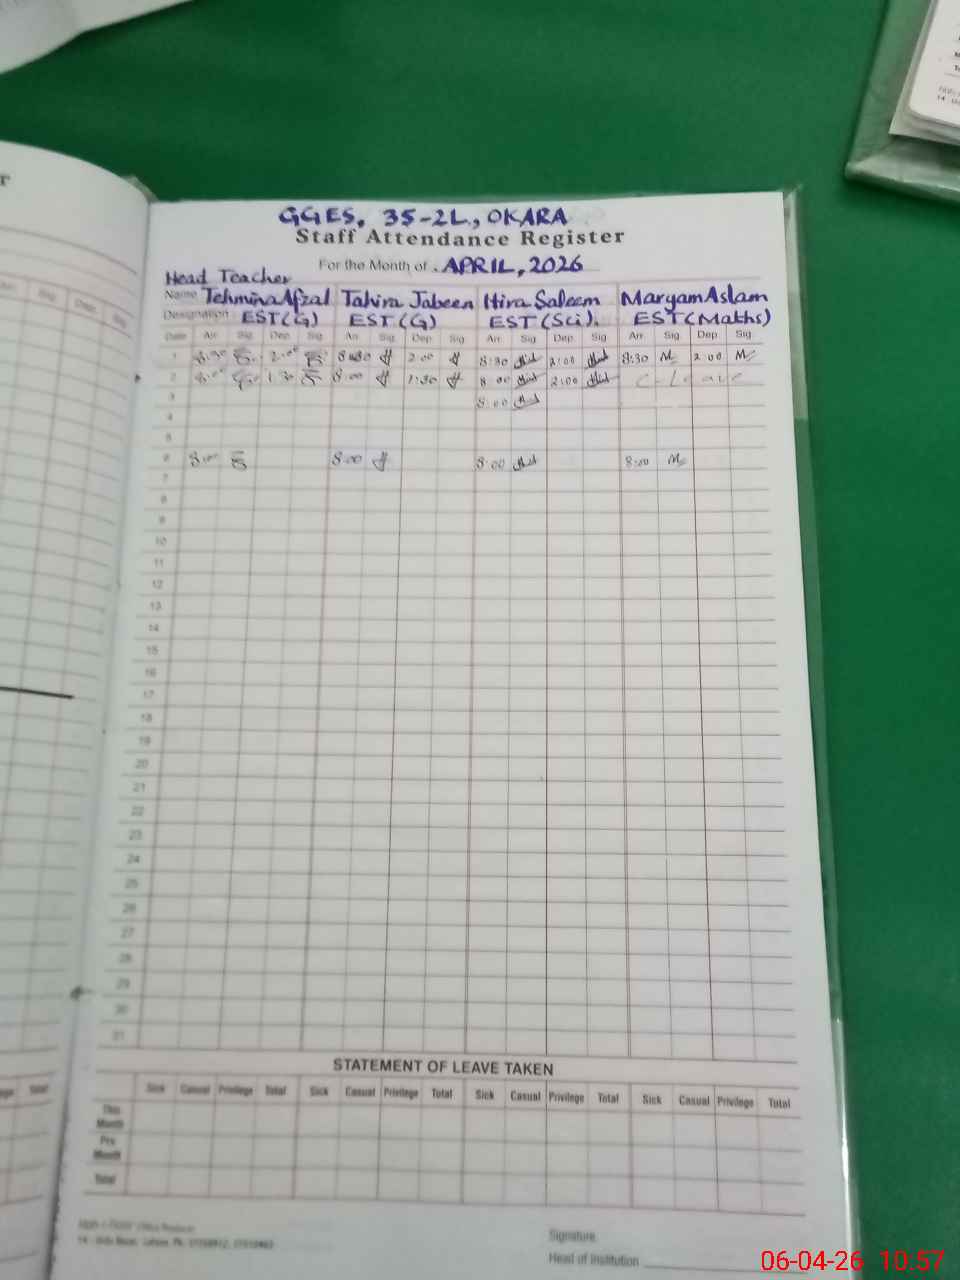 GGES, 35-2L, OKARA
Staff Attendance Register
For the Month of APRIL, 2026
Head Teacher
Name Tehmina Afzal Tahira Jabeen Hira Saleem Maryam Aslam
Designation EST(G) EST(G) EST(Sci). EST(Maths)
Date Arr Sig. Dep Sig Arr Sig. Dep Sig Arr Sig Dep Sig Arr Sig. Dep Sig
1 8:30 2:00 8:30 2:00 8:30 2:00 8:30 2:00
2 8:00 1:30 8:00 1:30 8:00 2:00 C-Leave
3 8:00
4
5
6 8:00 8:00 8:00 8:00
7
8
9
10
11
12
13
14
15
16
17
18
19
20
21
22
23
24
25
26
27
28
29
30
31
STATEMENT OF LEAVE TAKEN
Sick Casual Privilege Total Sick Casual Privilege Total Sick Casual Privilege Total Sick Casual Privilege Total
This Month
Pre Month
Total
Signature
Head of Institution
06-04-26 10:57